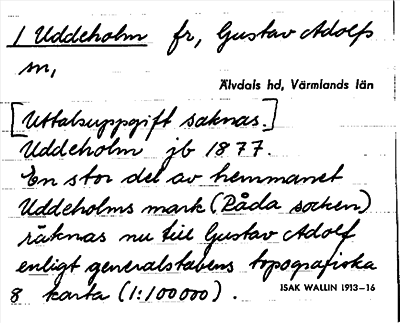 1 Uddeholm fr, Gustav Adolfs
sn,
Älvdals hd, Värmlands län
[Uttalsuppgift saknas.]
Uddeholm jb 1877.
En stor del av hemmanet
Uddeholms mark (Råda socken)
räknas nu till Gustav Adolf
enligt generalstabens topografiska
8 karta (1:100000).
ISAK WALLIN 1913–16